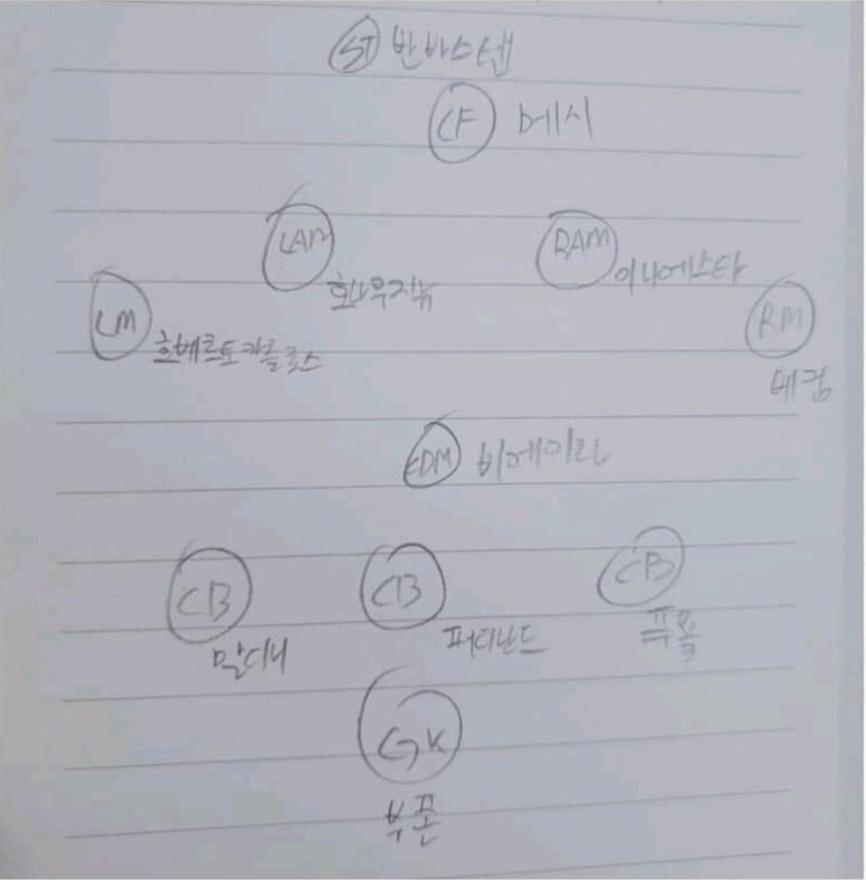 ST 반바스텐
CF 메시
LAM RAM
호나우지뉴 이니에스타
LM RM
호베르토카를로스
베컴
CDM 비에이라
CB CB CB
말디니 퍼디난드 푸욜
GK
부폰